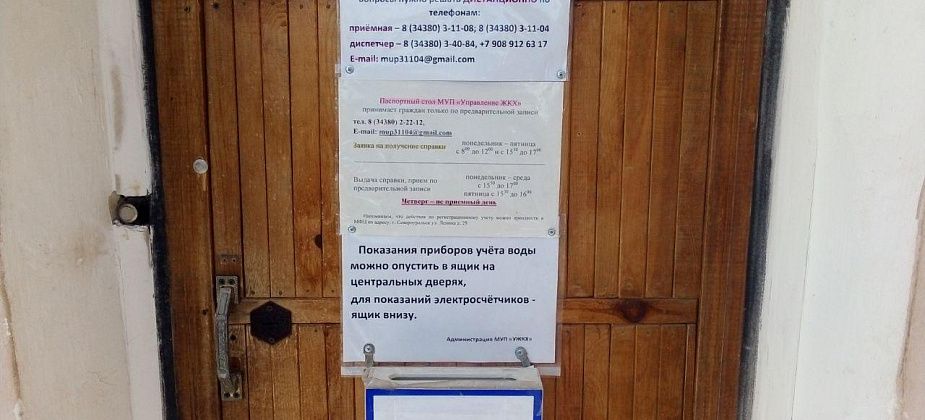 вопросы нужно решать ДИСТАНЦИОННО по
телефонам:
приёмная – 8 (34380) 3-11-08; 8 (34380) 3-11-04
диспетчер – 8 (34380) 3-40-84, +7 908 912 63 17
E-mail: mup31104@gmail.com
Паспортный стол МУП «Управление ЖКХ»
принимает граждан только по предварительной записи
тел. 8 (34380) 2-22-12,
E-mail: mup31104@gmail.com
Заявка на получение справки понедельник – пятница
с 8⁰⁰ до 12⁰⁰ и с 15¹⁰ до 17⁰⁰
Выдача справки, прием по понедельник – среда
предварительной записи с 15¹⁰ до 17⁰⁰
пятница с 15¹⁰ до 16⁰⁰
Четверг – не приемный день
Напоминаем, что действия по регистрационному учету можно произвести в
МФЦ по адресу: г. Североуральск ул. Ленина д. 29
Показания приборов учёта воды
можно опустить в ящик на
центральных дверях,
для показаний электросчётчиков -
ящик внизу.
Администрация МУП «УЖКХ»